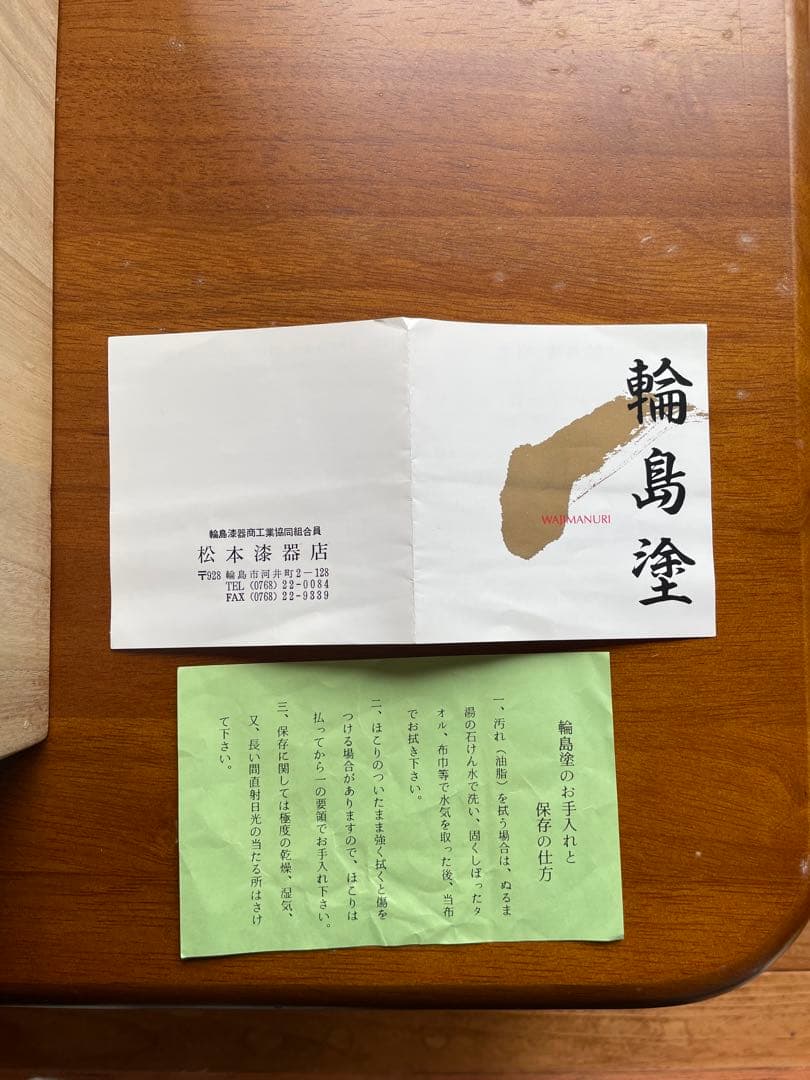 輪島塗
WAJIMANURI
輪島漆器商工業協同組合員
松本漆器店
〒928 輪島市河井町2-128
TEL (0768) 22-0084
FAX (0768) 22-9339
輪島塗のお手入れと
保存の仕方
一、汚れ(油脂)を拭う場合は、ぬるま
湯の石けん水で洗い、固くしぼったタ
オル、布巾等で水気を取った後、当布
でお拭き下さい。
二、ほこりのついたまま強く拭くと傷を
つける場合がありますので、ほこりは
払ってから一の要領でお手入れ下さい。
三、保存に関しては極度の乾燥、湿気、
又、長い間直射日光の当たる所はさけ
て下さい。